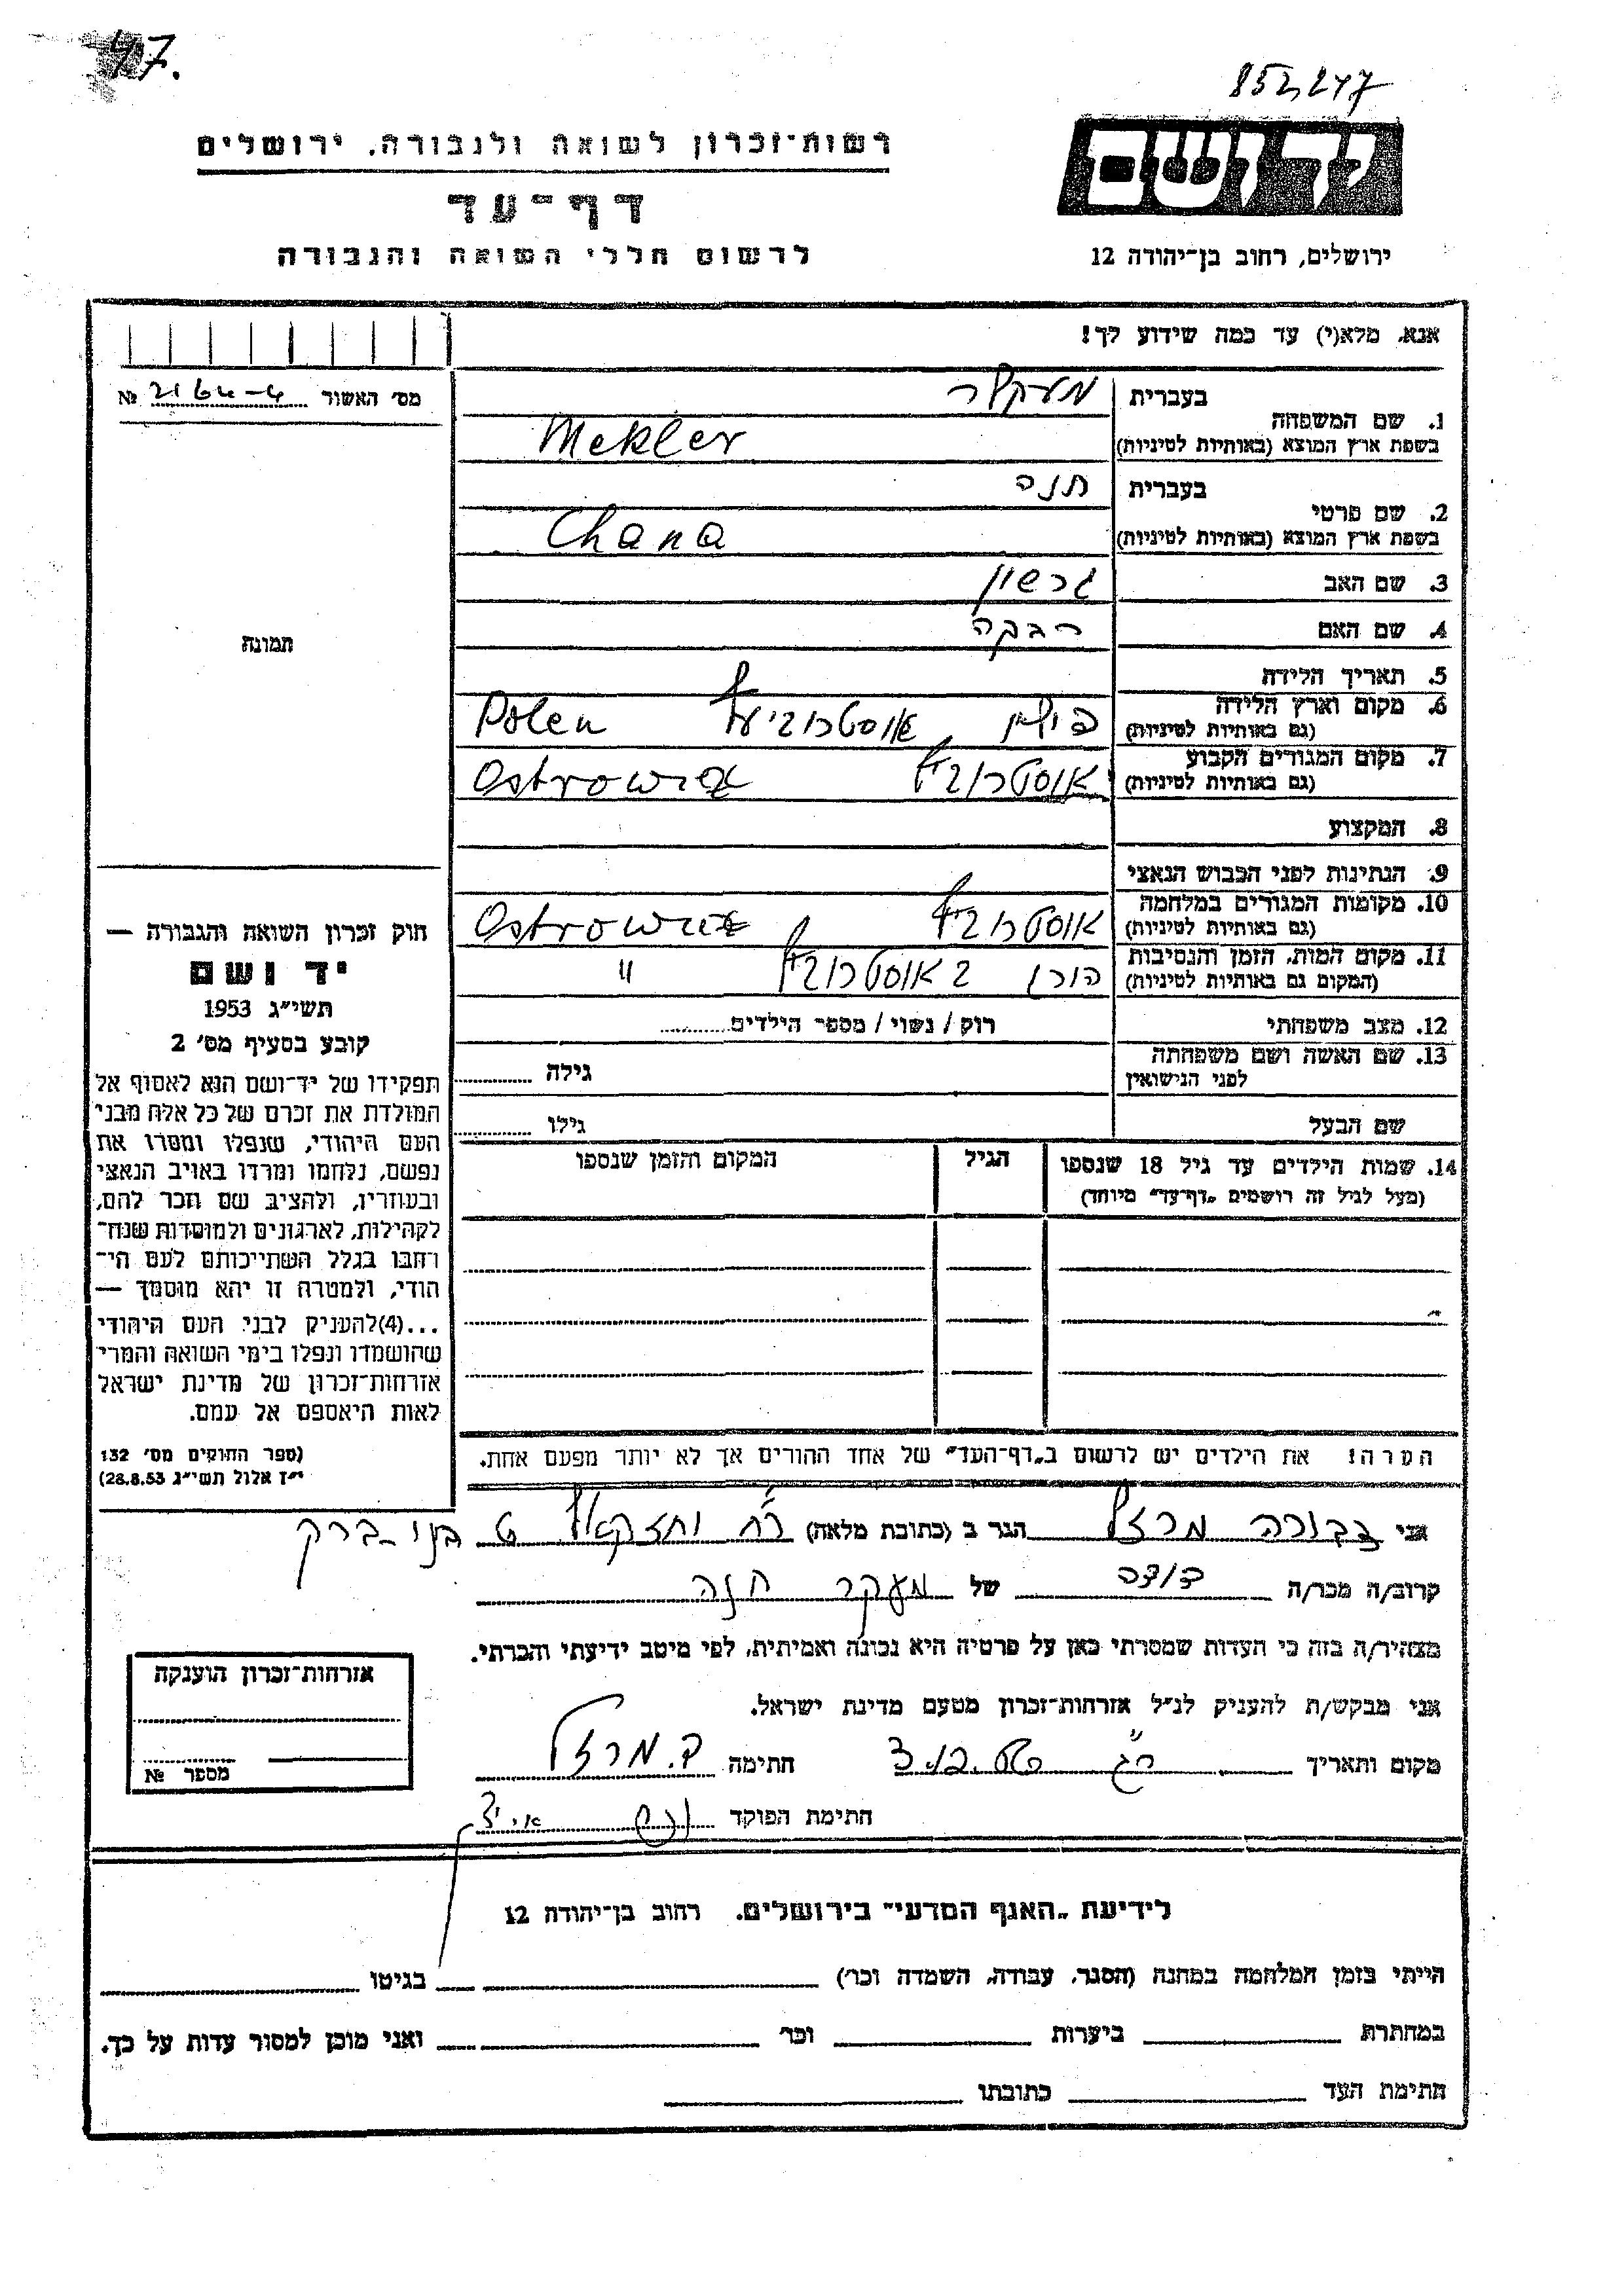 47.
852,247
רשות־זכרון לשואה ולגבורה, ירושלים
יד ושם
דף־עד
לרשום חללי השואה והגבורה
ירושלים, רחוב בן־יהודה 12
אנא, מלא(י) עד כמה שידוע לך!
מס׳ האשור №
1. שם המשפחה בעברית מעקלר
בשפת ארץ המוצא (באותיות לטיניות) Mekler
2. שם פרטי בעברית חנה
בשפת ארץ המוצא (באותיות לטיניות) Chana
3. שם האב גרשון
4. שם האם רבקה
5. תאריך הלידה
6. מקום וארץ הלידה (גם באותיות לטיניות) פולין Polen
7. מקום המגורים הקבוע (גם באותיות לטיניות)
8. המקצוע
9. הנתינות לפני הכבוש הנאצי
10. מקומות המגורים במלחמה (גם באותיות לטיניות)
11. מקום המות, הזמן והנסיבות (המקום גם באותיות לטיניות) "
12. מצב משפחתי רוק / נשוי / מספר הילדים
13. שם האשה ושם משפחתה לפני הנישואין גילה
שם הבעל גילו
14. שמות הילדים עד גיל 18 שנספו הגיל המקום והזמן שנספו
(מעל לגיל זה רושמים „דף־עד״ מיוחד)
הערה! את הילדים יש לרשום ב„דף־העד״ של אחד ההורים אך לא יותר מפעם אחת.
תמונה
חוק זכרון השואה והגבורה —
יד ושם
תשי״ג 1953
קובע בסעיף מס׳ 2
תפקידו של יד־ושם הוא לאסוף אל
המולדת את זכרם של כל אלה מבני
העם היהודי, שנפלו ומסרו את
נפשם, נלחמו ומרדו באויב הנאצי
ובעוזריו, ולהציב שם וזכר להם,
לקהילות, לארגונים ולמוסדות שנח־
רבו בגלל השתייכותם לעם הי־
הודי, ולמטרה זו יהא מוסמך —
...(4)להעניק לבני העם היהודי
שהושמדו ונפלו בימי השואה והמרי
אזרחות־זכרון של מדינת ישראל
לאות היאספם אל עמם.
(ספר החוקים מס׳ 132
י״ז אלול תשי״ג 28.8.53)
אני דבורה מרזל הגר ב (כתובת מלאה) רח׳ בני-ברק
קרוב/ה מכר/ה דודה של חנה
מצהיר/ה בזה כי העדות שמסרתי כאן על פרטיה היא נכונה ואמיתית, לפי מיטב ידיעתי והכרתי.
אני מבקש/ת להעניק לנ״ל אזרחות־זכרון מטעם מדינת ישראל.
מקום ותאריך חתימה ד. מרזל
חתימת הפוקד
אזרחות־זכרון הוענקה
מספר №
לידיעת „האגף המדעי״ בירושלים, רחוב בן־יהודה 12
הייתי בזמן המלחמה במחנה (הסגר, עבודה, השמדה וכו׳) בגיטו
במחתרת ביערות וכו׳ ואני מוכן למסור עדות על כך.
חתימת העד כתובתו